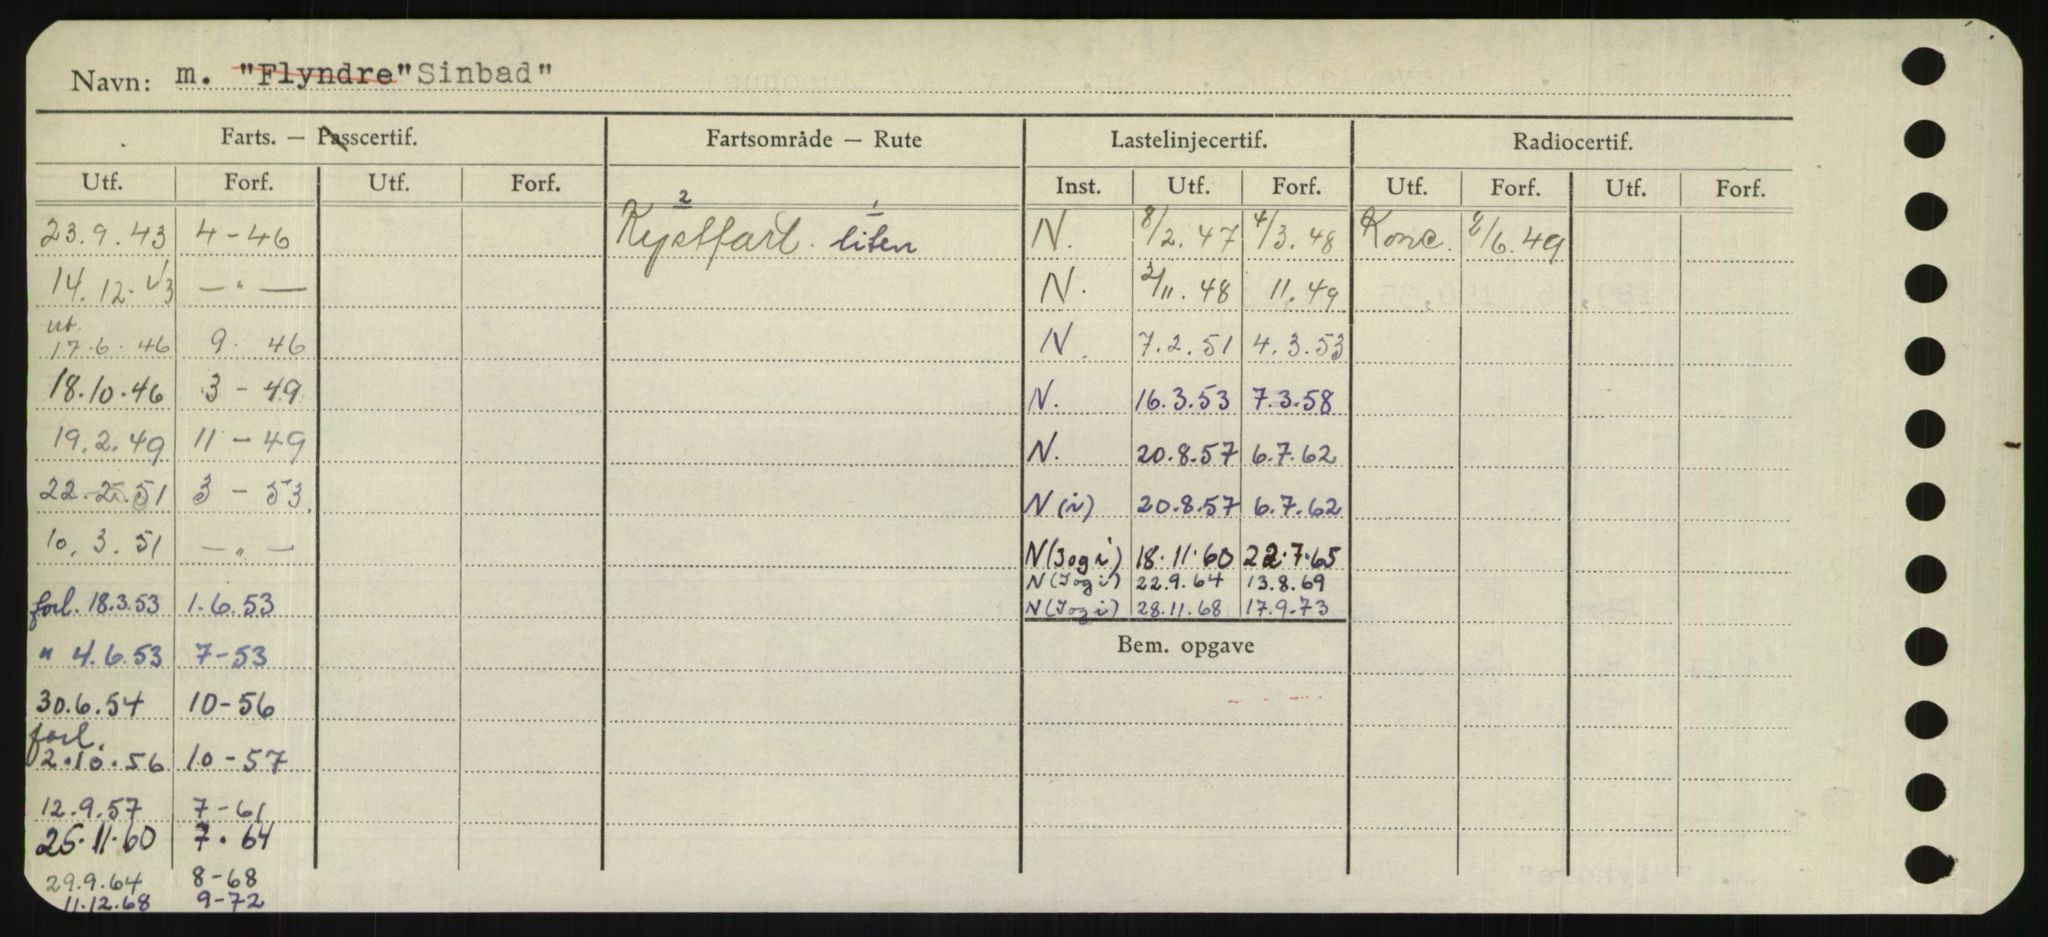 Navn: m. "Flyndre" Sinbad"
Farts. — Passcertif. Fartsområde — Rute Lastelinjecertif. Radiocertif.
Utf. Forf. Utf. Forf. Inst. Utf. Forf. Utf. Forf. Utf. Forf.
2 1
23.9.43 4-46 Kystfart. liten N. 8/2.47 4/3.48 Konc. 2/6.49
14.12.43 —"— N. 2/11.48 11.49
17.6.46 9. 46 N. 7.2.51 4.3.53
18.10.46 3-49 N. 16.3.53 7.3.58
19.2.49 11-49 N. 20.8.57 6.7.62
22.2.51 3-53. N(i) 20.8.57 6.7.62
10.3.51 —"— N(Jog i) 18.11.60 22.7.65
N(Jog i) 22.9.64 13.8.69
forl. 18.3.53 1.6.53 N(Jog i) 28.11.68 17.9.73
" 4.6.53 7-53 Bem. opgave
30.6.54 10-56
forl.
2.10.56 10-57
12.9.57 7-61
25.11.60 7.64
29.9.64 8-68
11.12.68 9-72